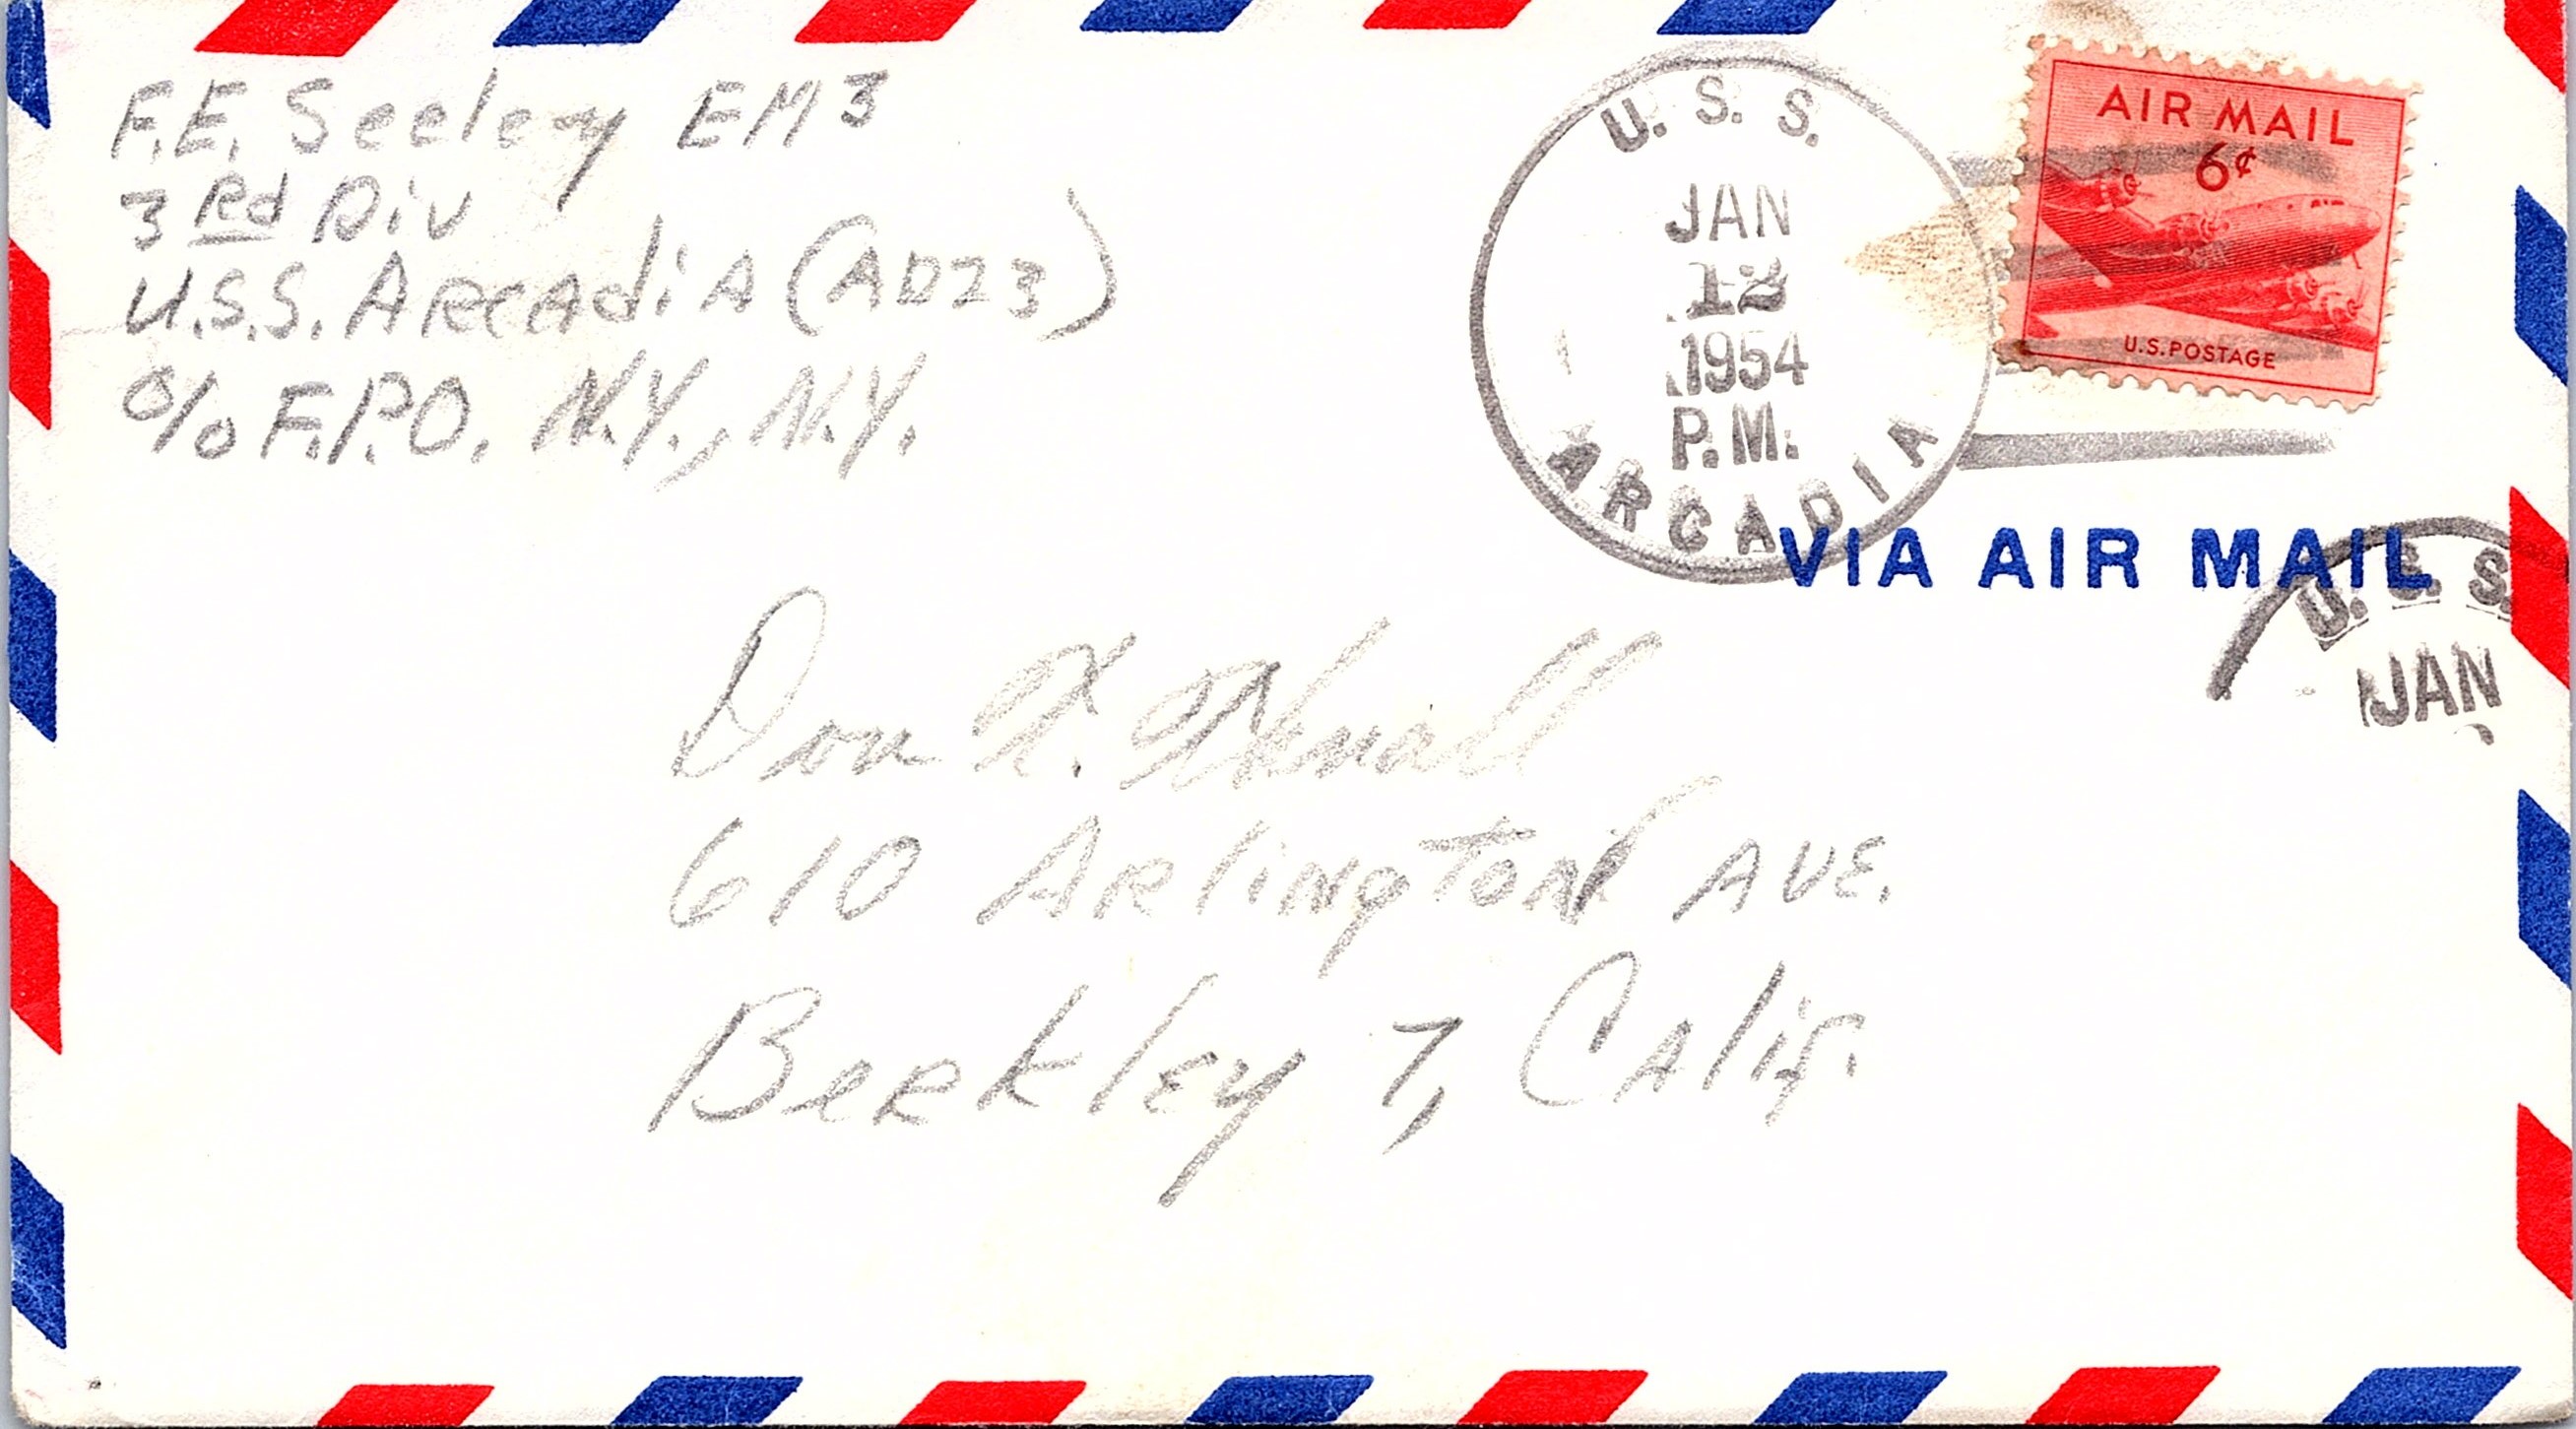 F.E. Seeley EM3
3Rd Div
U.S.S. Arcadia (AD23)
c/o F.P.O. N.Y., N.Y.
U. S. S.
JAN
12
1954
P.M.
ARCADIA
AIR MAIL
6¢
U.S. POSTAGE
VIA AIR MAIL
U. S. S.
JAN
Don
610 Arlington Ave.
Berkley 7, Calif.